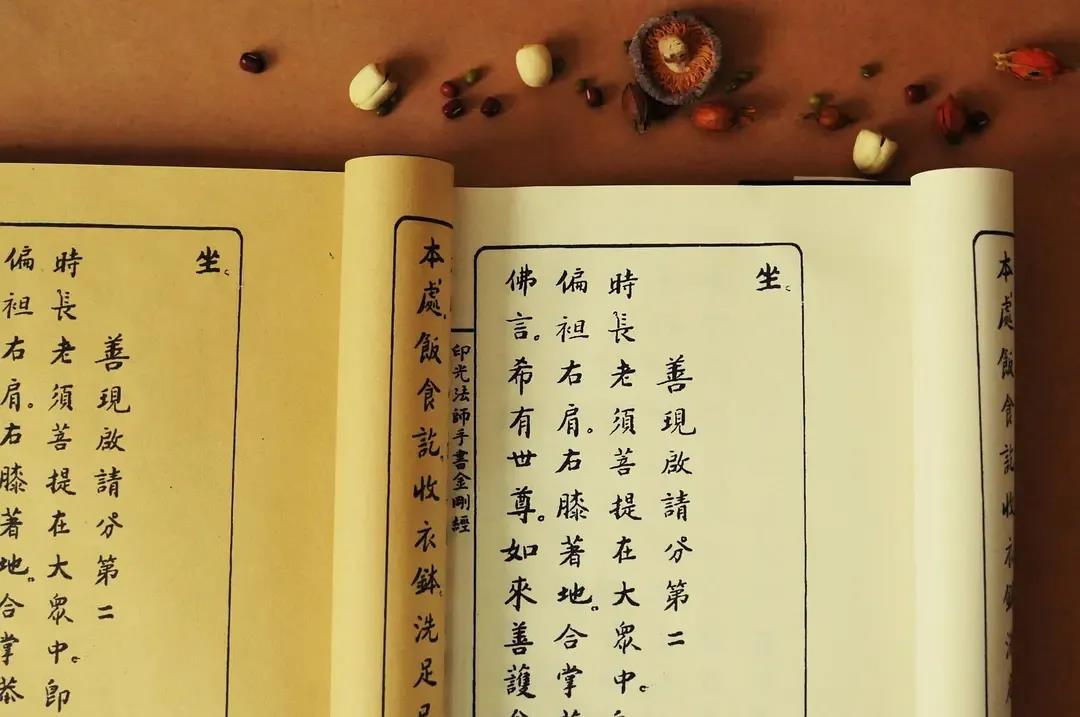 本處飯食訖收衣鉢
坐。
善現啟請分第二
時長老須菩提在大眾中。
偏袒右肩。右膝著地。合掌
佛言。希有世尊。如來善護
印光法師手書金剛經
本處。飯食訖。收衣鉢。洗足
坐。
善現啟請分第二
時長老須菩提在大眾中。即
偏袒右肩。右膝著地。合掌恭